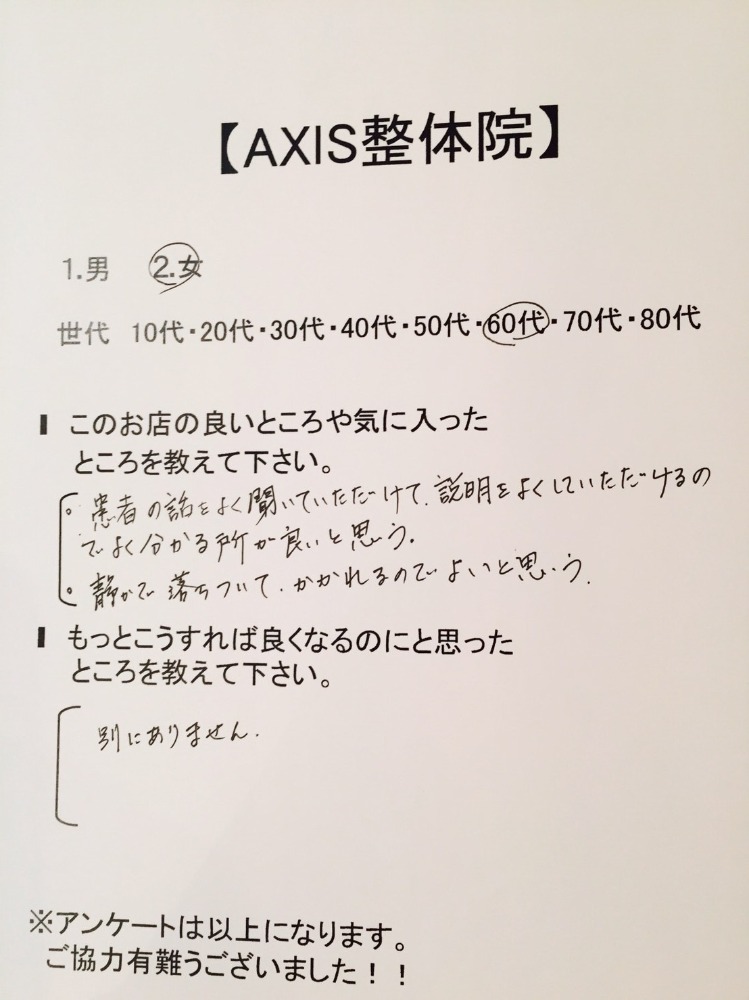 【AXIS整体院】
1.男 2.女
世代 10代・20代・30代・40代・50代・60代・70代・80代
このお店の良いところや気に入った
ところを教えて下さい。
。患者の話をよく聞いていただけて、説明をよくしていただけるの
でよく分かる所が良いと思う。
。静かで落ちついて、かかれるのでよいと思う。
もっとこうすれば良くなるのにと思った
ところを教えて下さい。
別にありません。
※アンケートは以上になります。
ご協力有難うございました！！